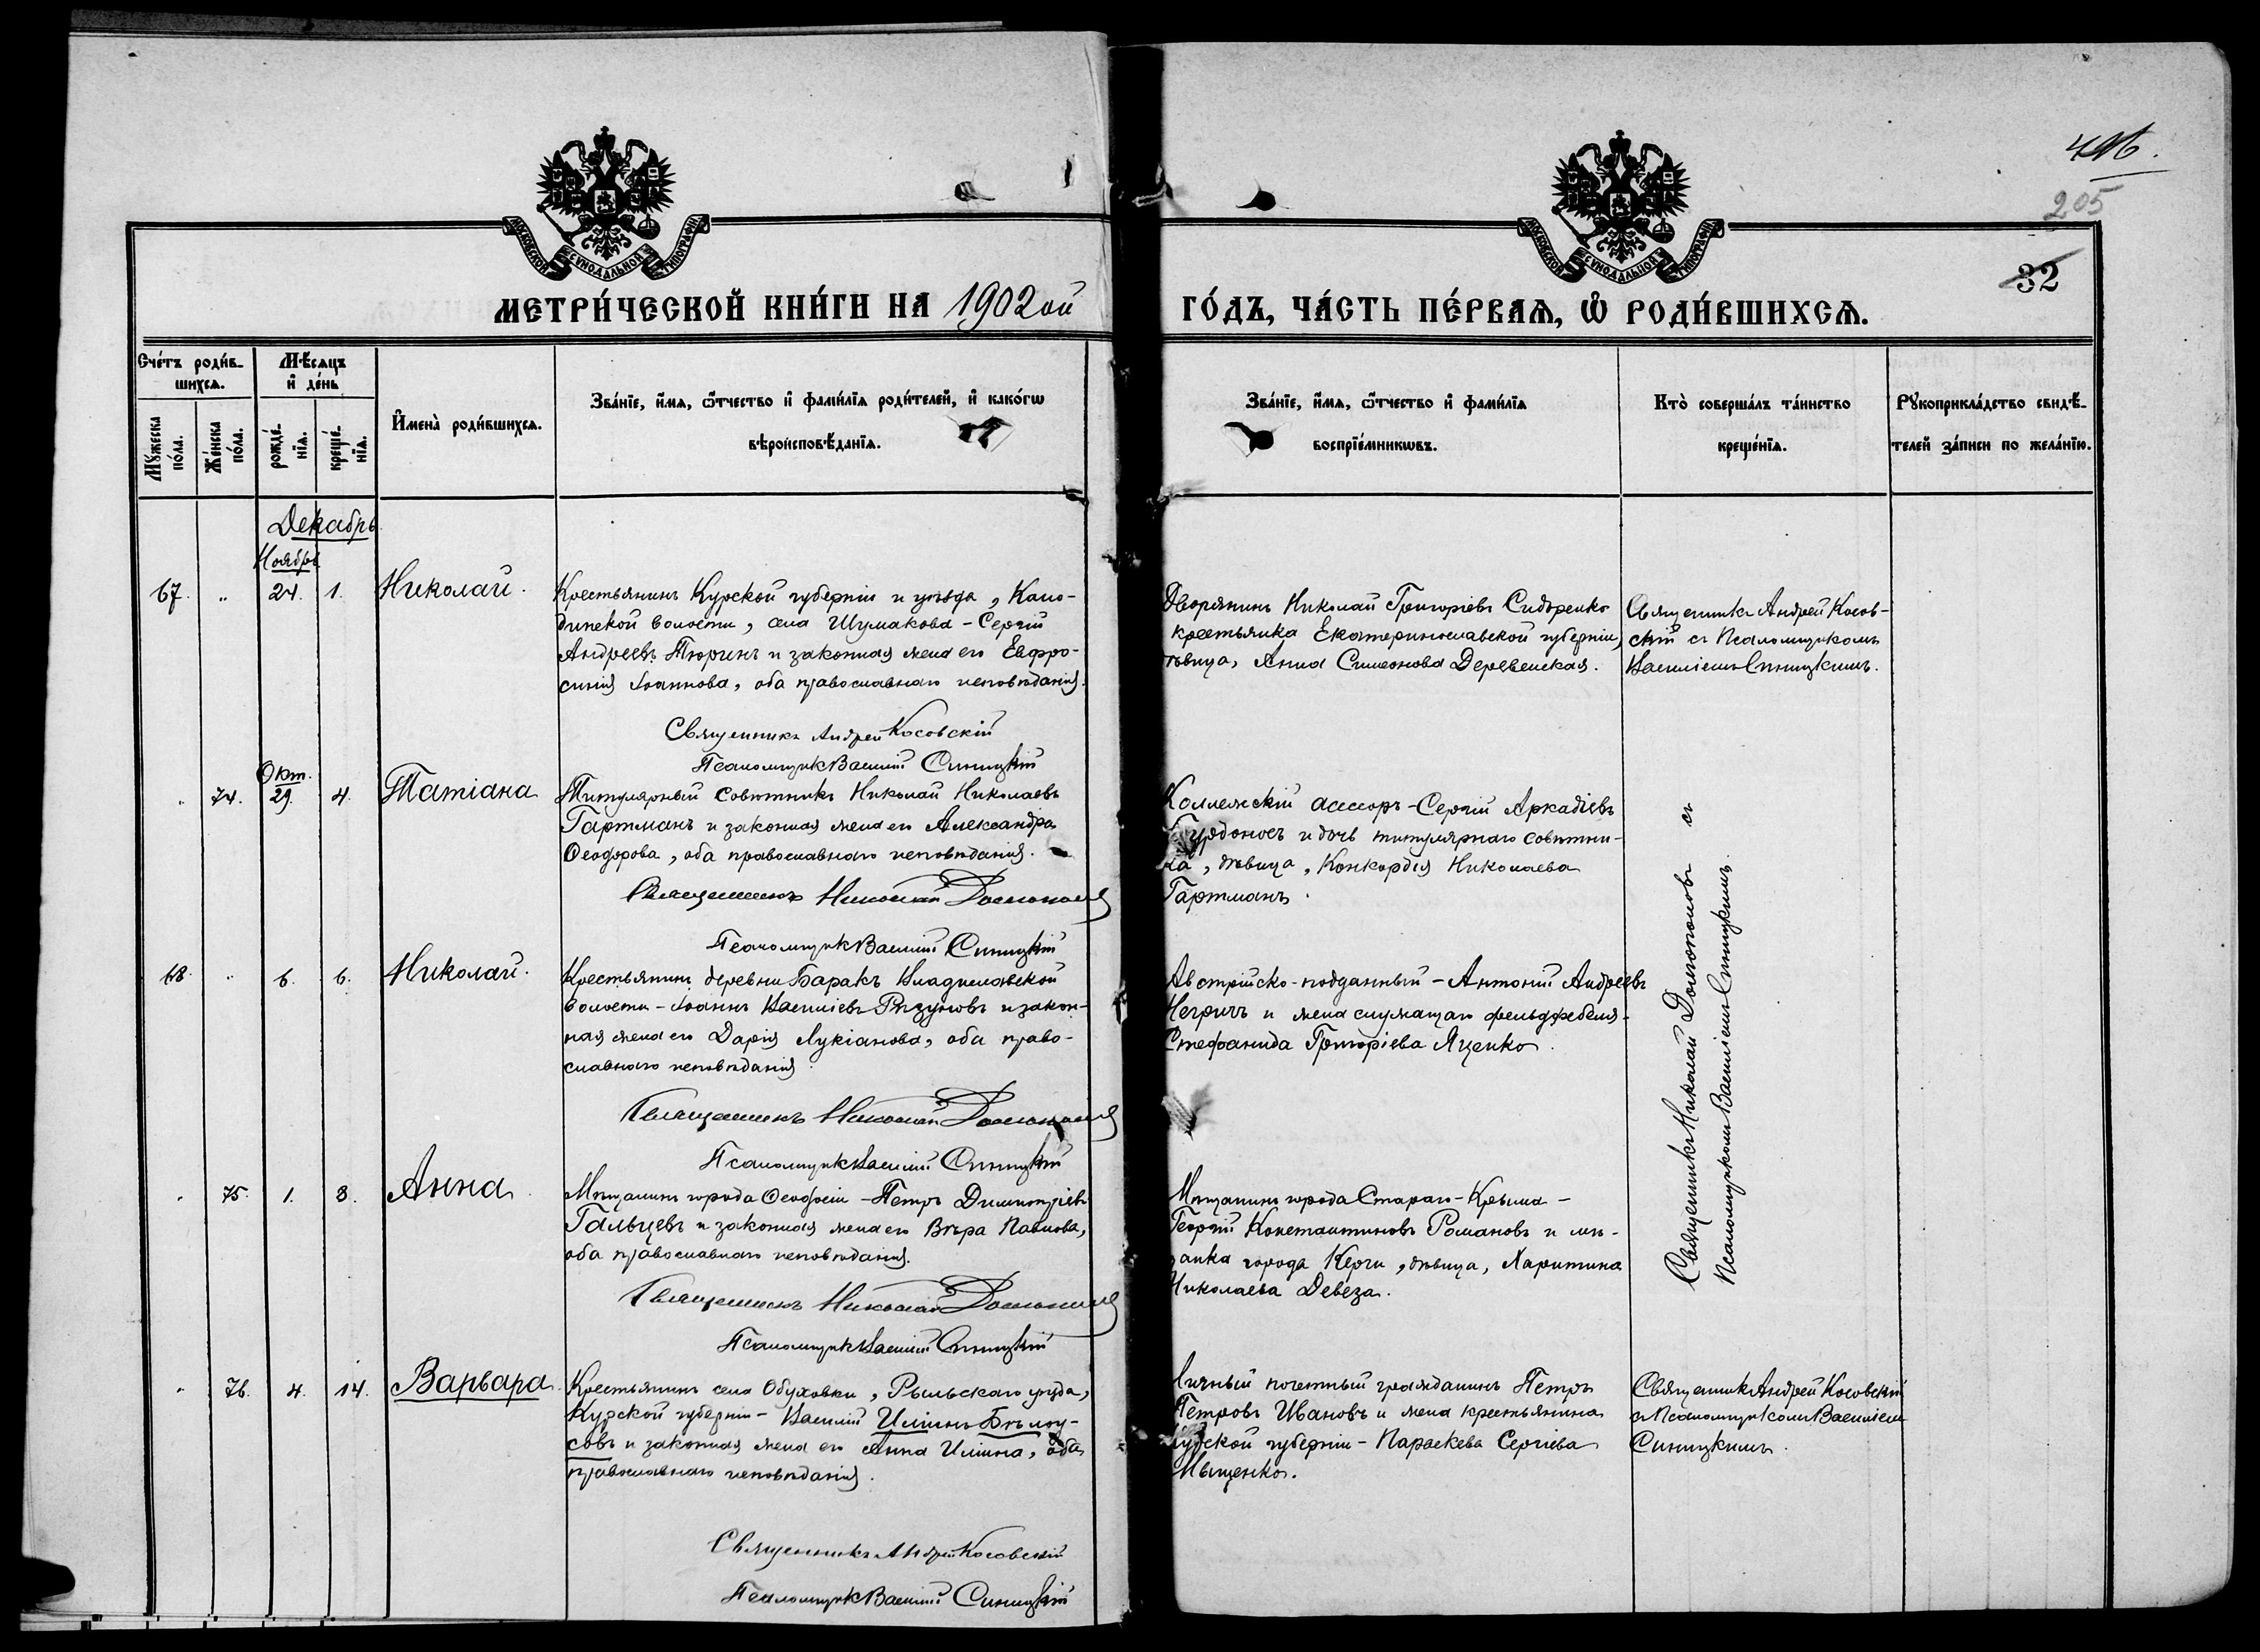 416.
205
32
МОСКОВСКОЙ СѴНОДАЛЬНОЙ ТИПОГРАФІИ
МОСКОВСКОЙ СѴНОДАЛЬНОЙ ТИПОГРАФІИ
МЕТРИ́ЧЕСКОЙ КНИ́ГИ НА 1902ой
ГО́ДЪ, ЧА́СТЬ ПЕ́РВАѦ, Ѡ҆ РОДИ́ВШИХСѦ.
Сче́тъ роди́в-
шихсѧ.
Мѣ́сѧцъ
и҆ де́нь
Мꙋ́жеска
по́ла.
Же́нска
по́ла.
рожде́-
нїѧ.
креще́-
нїѧ.
И҆мена̀ роди́вшихсѧ.
Зва́нїе, и҆́мѧ, ѻ҆́тчество и҆ фами́лїѧ роди́телей, и҆ како́гѡ
вѣроисповѣ́данїѧ.
Зва́нїе, и҆́мѧ, ѻ҆́тчество и҆ фами́лїѧ
воспрїе́мникѡвъ.
Кто̀ соверша́лъ та́инство
креще́нїѧ.
Рꙋкоприкла́дство свидѣ́-
телей за́писи по жела́нїю.
Декабрь
Ноябрь
67. " 24. 1. Николай.
Крестьянинъ Курской губерніи и уѣзда,
волости, села Шумакова - Сергій
Андреевъ Тюринъ и законная жена его Евфро-
синія Іоаннова, оба православнаго исповѣданія.
Священникъ Андрей Косовскій
Псаломщикъ Василій Синицкій
Дворянинъ Николай Григоріевъ Сидоренко
крестьянка Екатеринославской губерніи,
дѣвица, Анна Симеонова Деревенская.
Священникъ Андрей Косов-
скій съ Псаломщикомъ
Василіемъ Синицкимъ.
Окт.
74. 29. 4. Татіана
Титулярный совѣтникъ Николай Николаевъ
Гартманъ и законная жена его Александра
Ѳеодорова, оба православнаго исповѣданія.
Священникъ Николай
Псаломщикъ Василій Синицкій
Коллежскій ассесоръ - Сергій Аркадіевъ
и дочь титулярнаго совѣтни-
ка, дѣвица, Конкордія Николаева
Гартманъ.
Священникъ Николай съ
Псаломщикомъ Василіемъ Синицкимъ.
68. " 6. 6. Николай.
Крестьянинъ деревни Баракъ Владиславской
волости - Іоаннъ Василіевъ Рязуновъ и закон-
ная жена его Дарія Лукіанова, оба право-
славнаго исповѣданія
Священникъ Николай
Псаломщикъ Василій Синицкій
Австрійско-подданный - Антоній Андреевъ
Негричъ и жена служащаго фельдфебеля -
Стефанида Григоріева Яценко.
75. 1. 8. Анна
Мѣщанинъ города Ѳеодосіи - Петръ Димитріевъ
Гальцевъ и законная жена его Вѣра Павлова,
оба православнаго исповѣданія.
Священникъ Николай
Псаломщикъ Василій Синицкій
Мѣщанинъ города Стараго-Крыма -
Георгій Константиновъ Романовъ и мѣ-
щанка города Керчи, дѣвица, Харитина
Николаева Девеза.
76. 4. 14. Варвара
Крестьянинъ села Обуховки, Рыльскаго уѣзда,
Курской губерніи - Василій Илiинъ Бѣлоу-
совъ и законная жена его Анна Илiина, оба
православнаго исповѣданія.
Священникъ Андрей Косовскій
Псаломщикъ Василій Синицкій
Личный почетный гражданинъ Петръ
Петровъ Ивановъ и жена крестьянина
Курской губерніи - Параскева Сергіева
Мыщенко.
Священникъ Андрей Косовскій
съ Псаломщикомъ Василіемъ
Синицкимъ.